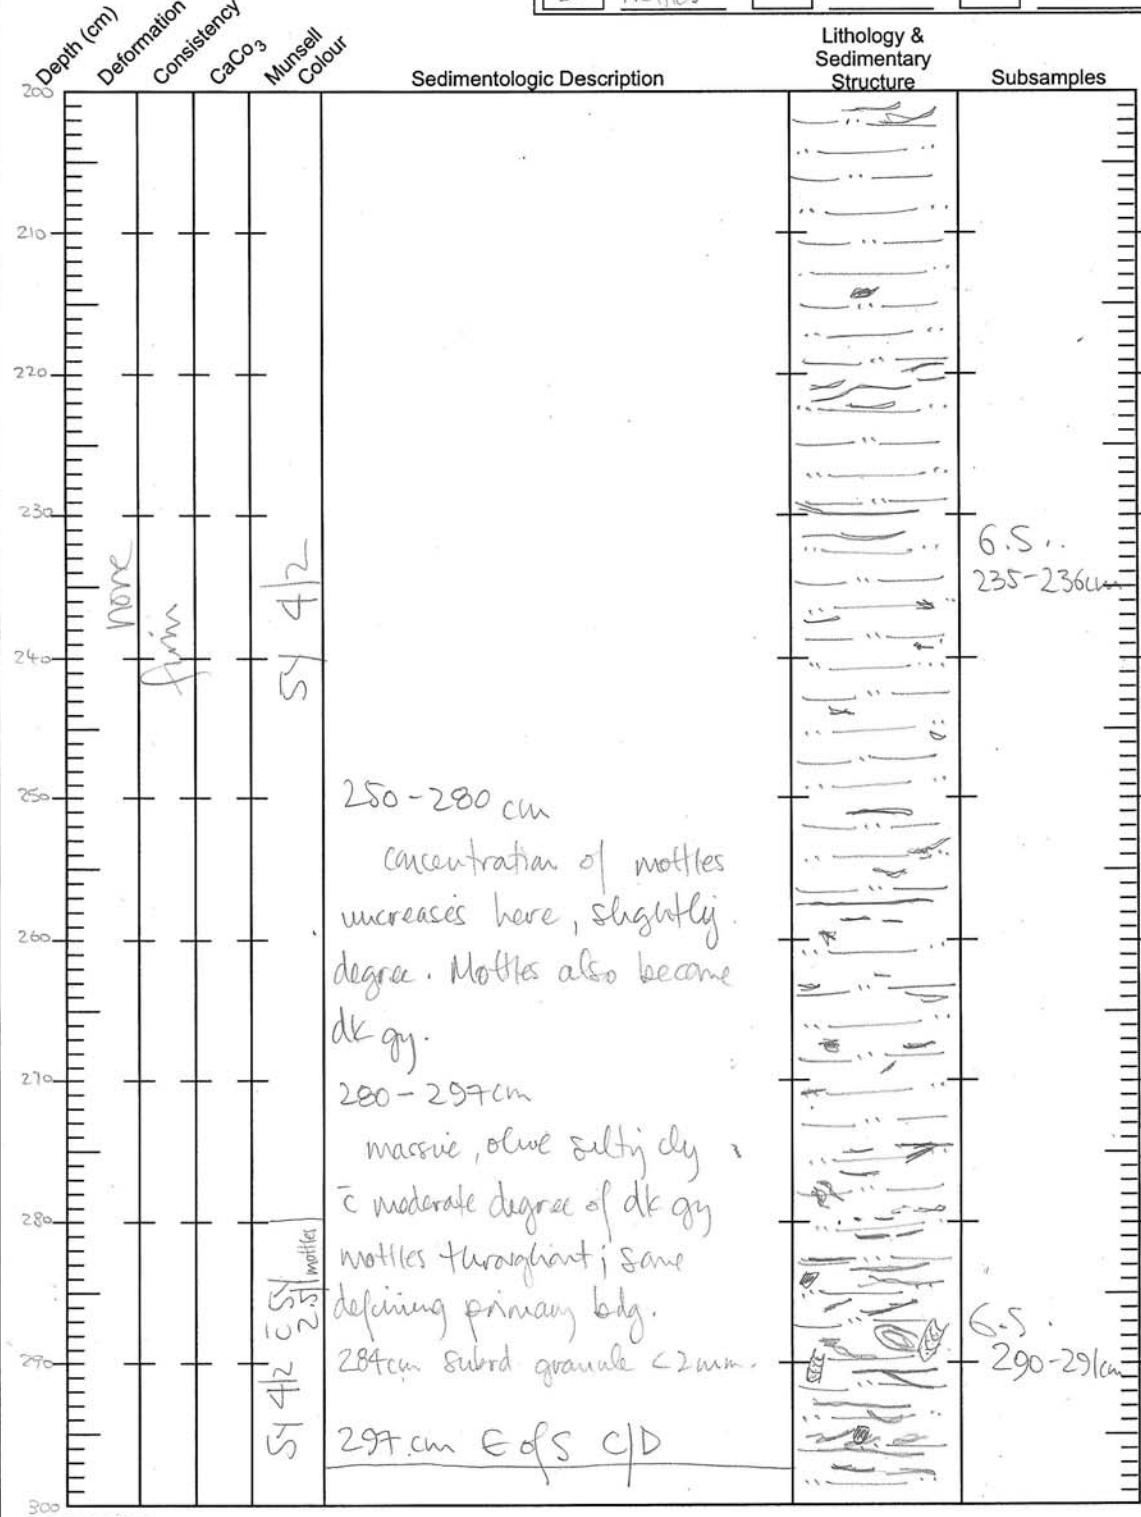 Depth (cm)
Deformation
Consistency
CaCo3
Munsell Colour
Sedimentologic Description
Lithology &
Sedimentary
Structure
Subsamples
200
210
220
230
240
250
260
270
280
270
300
none
firm
5Y 4/2
6.S..
235-236cm
250-280 cm
concentration of mottles
increases here, slightly
degree. Mottles also become
dk gy.
280-297cm
massive, olive silty cly
c̄ moderate degree of dk gy
mottles throughout; some
defining primary bdg.
284cm subrd granule <2mm.
297.cm E of S C/D
5Y 4/2 c̄ 5Y
2.5/1 mottles
6.S.
290-291cm